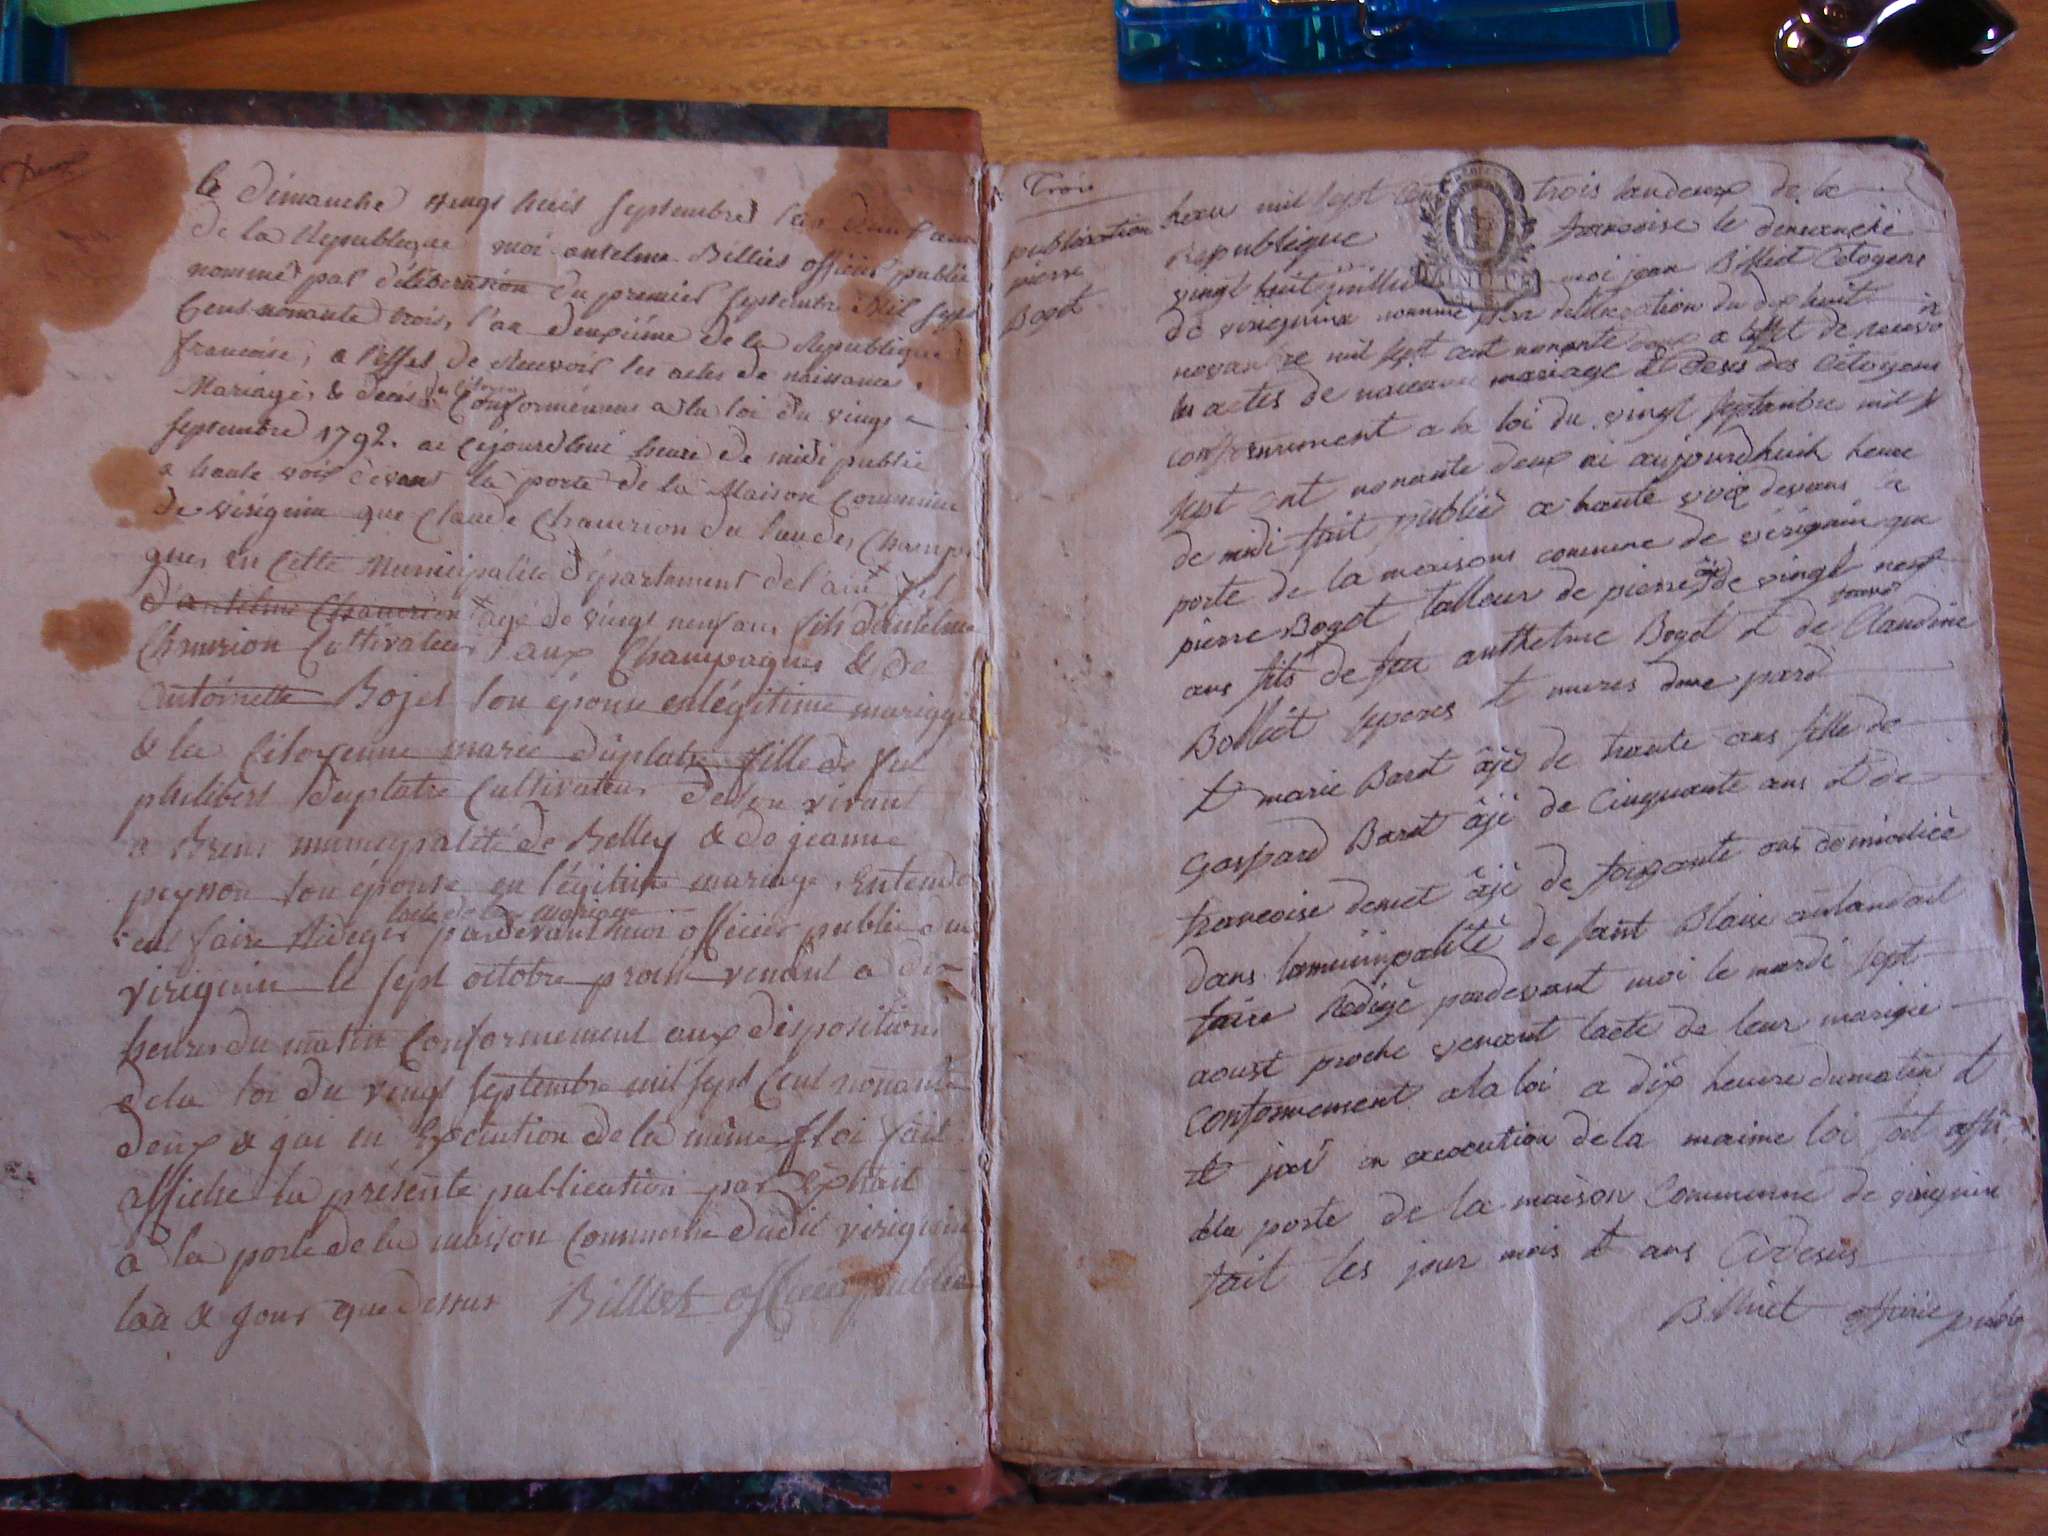 Deux
Le dimanche vingt huit septembre l'an deuxieme
de la République moi antelme Billiet officier public
nommé par déliberation du premier septembre Mil sept
Cent nonante trois, l'an deuxiéme de la République
francoise, a l'effet de Recevoir les actes de naissances,
Mariages & décès des Citoyens Conformément a la loi du vingt
septembre 1792. ai cejourd'hui heure de midi publié
a haute voix devant la porte de la Maison Commune
de virignin que Claude Chaurion du lieu des Champa
gnes en Cette Municipalité département de l'ain fil
d'antelme Chaurion agé de vingt neuf ans fils d'antelme
Chaurion Cultivateur aux Champagnes & de
antoinette Bojet son épouse en légitime mariage
& la Citoyenne marie duplatre fille de feu
philibert duplatre Cultivateur de son vivant
a Brens municipalité de Belley & de jeanne
peysson son épouse en légitime mariage, Entende
ent faire Rédeger l'acte de leur mariage pardevant moi officier public dud
virignin le sept octobre prochain venant a dix
heures du matin Conformement aux dispositions
de la loi du vingt septembre mil sept Cent nonante
deux & j'ai en Exécution de la même loi fait
afficher la présente publication par Extrait
a la porte de la maison Commune dudit virignin
l'an & jour que dessus Billiet officier public
Trois
publication
pierre
Bogot
heau mil sept cent trois landeux de la
Republique francoise le demanche
vingt huit juillet moi jean Billiet Citoyens
de virignin nomme par deliberation du dix huit
novanbre mil sept cent nonante deux a leffet de recevoir
les actes de naicance mariage & deses des Citoyens
conformement a la loi du vingt septanbre mil s
sept cent nonante deux ai aujourdhuih heure
de midi fait publié a haute voix devans la
porte de la maisons commune de virignin que
pierre Bogot talleur de pierre aje de vingt neuf
ans fils de feu anthelme Bogot & de Claudine
Bolliet d'une pard
& marie Barot âjé de trante ans fille de
Gaspard Barot âjé de Cinquante ans & de
francoise demet âjé de soixante ans domicilié
dans lamunipalité de saint Blaise antandait
faire Redigé pardevant moi le mardi sept
aoust proche venant lacte de leur marige
conformement ala loi a dix heure dumatin &
& jai en exocution de la maime loi fait affi
ala porte de la maison Commenne de virignin
fait les jour mois & ans Cidesus
Billiet officie public